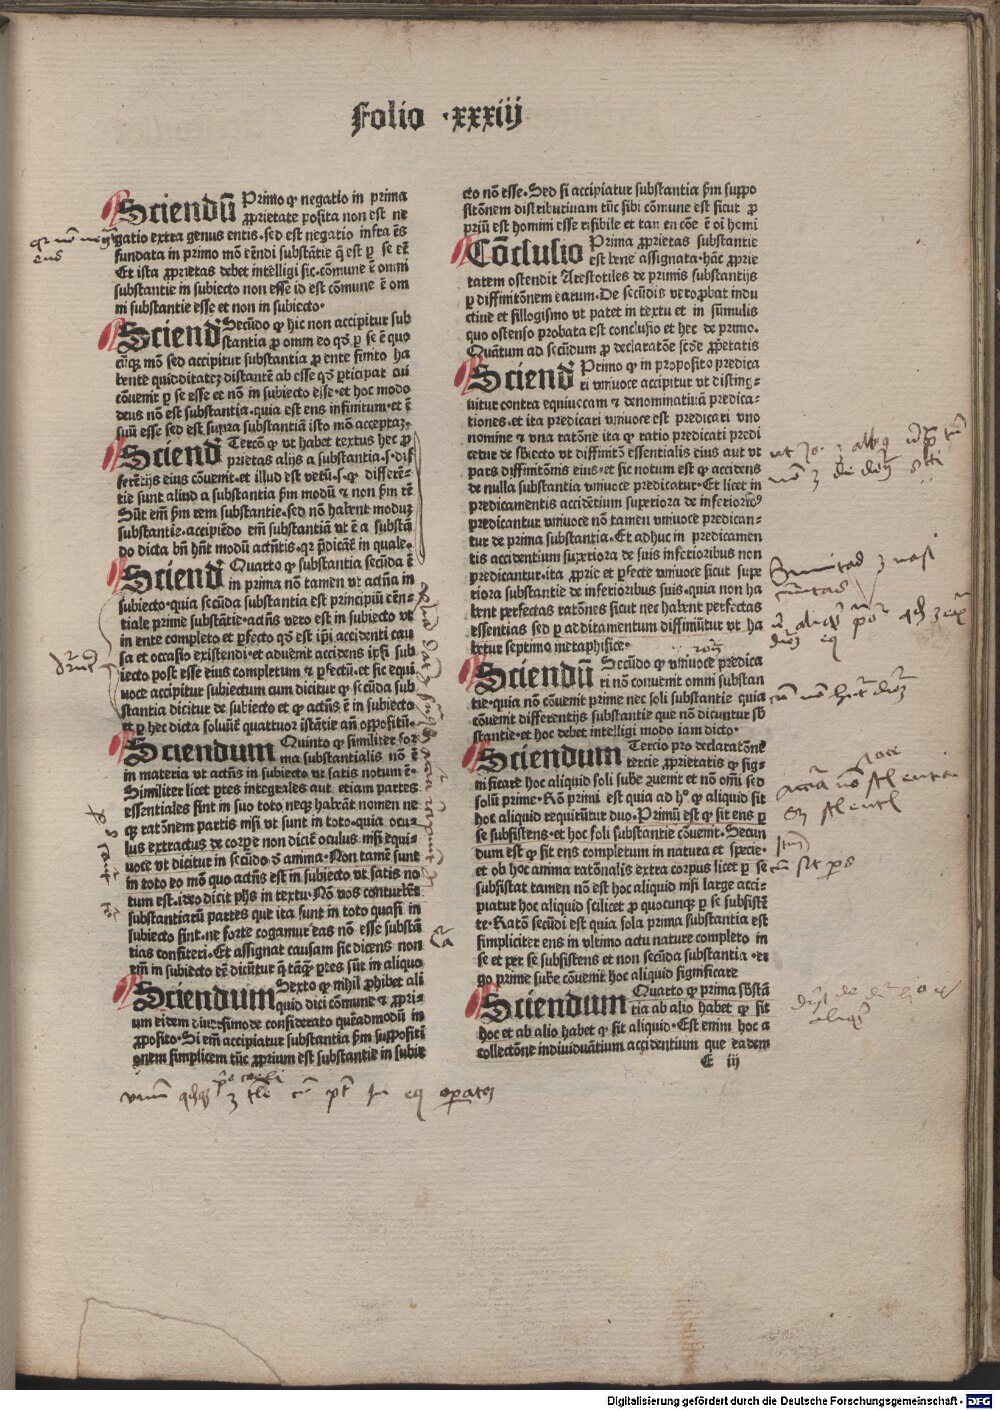 Folio .xxxiij
Sciendū Primo qͥ negatio in prima
ꝓprietate posita non est ne
gatio extra genus entis. sed est negatio infra ēs
fundata in primo mō eēndi substātie q̄ est ꝑ se eē
Et ista ꝓprietas debet intelligi sic. cōmune ē omni
substantie in subiecto non esse id est cōmune ē om
ni substantie esse et non in subiecto.
Sciend̄ Secūdo qͥ hic non accipitur sub
stantia ꝓ omm eo qd̄ ꝑ se ē quo
cūqꝫ mō sed accipitur substantia ꝓ ente finito ha
bente quidditateꝫ distantē ab esse qd̄ ꝑticipat cui
cōuenit ꝑ se esse et nō in subiecto esse. et hoc modo
deus nō est substantia. quia est ens infinitum. et ē
suū esse sed est supra substantiā isto mō acceptaꝫ.
Sciend̄ Tercō qͥ vt habet textus hec ꝓ
prietas alijs a substantia .s. dif
ferētijs eius cōuenit. et illud est verū .s. qͥ differē
tie sunt aliud a substantia ẜm modū ⁊ non ẜm rē
Sūt em̄ ẜm rem substantie. sed nō habent moduꝫ
substantie. accipiēdo em̄ substantiā vt ē a substā
do dicta bn̄ hn̄t modū actn̄tis. qꝛ p̄dicāt̄ in quale.
Sciend̄ Quarto qͥ substantia secūda ē
in prima nō tamen vt actn̄a in
subiecto. quia secūda substantia est principiū essē
tiale prime substātie. actn̄s vero est in subiecto vt
in ente completo et ꝑfecto qd̄ est ip̄i accidenti cau
sa et occasio existendi. et aduenit accidens ip̄si sub
iecto post esse eius completum ⁊ ꝑfectū. et sic equi
uoce accipitur subiectum cum dicitur qͥ secūda sub
stantia dicitur de subiecto et qͥ actn̄s ē in subiecto
et ꝑ hec dicta soluūt̄ quattuor istātie an̄ oppositū.
Sciendum Quinto qͥ similiter for
ma substantialis nō ē
in materia vt actn̄s in subiecto vt satis notum ē.
Similiter licet ꝑtes integrales aut etiam partes
essentiales sint in suo toto neqꝫ habeāt nomen ne
qꝫ ratōnem partis nisi vt sunt in toto. quia ocu
lus extractus de corꝑe non dicit̄ oculus nisi equi
uoce vt dicitur in secūdo d̄ anima. Non tamē sunt
in toto eo mō quo actn̄s est in subiecto vt satis no
tum est. ideo dicit ph̄s in textu. Nō vos conturbēt
substantiarū partes que ita sunt in toto quasi in
subiecto sint. ne forte cogamur eas nō esse substā
tias confiteri. Et assignat causam sic dicens non
em̄ in subiecto eē dicūtur q̄ tāqꝫ ꝑtes sūt in aliquo
Sciendum Sexto qͥ nihil ꝓhibet ali
quid dici cōmune ⁊ ꝓpri
um eidem diuersimode considerato quēadmodū in
ꝓposito. Si em̄ accipiatur substantia ẜm suppositi
onem simplicem tūc ꝓprium est substantie in subie
cto nō esse. Sed si accipiatur substantia ẜm suppo
sitōnem distributiuam tūc sibi cōmune est sicut ꝓ
priū est homini esse risibile et tan en cōe ē oi homi
Cōclusio Prima ꝓprietas substantie
est bene assignata. hāc ꝓprie
tatem ostendit Arestotiles de primis substantijs
ꝑ diffinitōnem earum. De secūdis vero ꝓbat indu
ctiue et sillogismo vt patet in textu et in sūmulis
quo ostenso probata est conclusio et hec de primo.
Quātum ad secūdum ꝓ declaratōe scd̄e ꝓp̄etatis
Sciend̄ Primo qͥ in proposito predica
ri vniuoce accipitur vt disting
uitur contra equiuocam ⁊ denominatiuā predica
tiones. et ita predicari vniuoce est predicari vno
nomine ⁊ vna ratōne ita qͥ ratio predicati predi
cetur de sbiecto vt diffinitō essentialis eius aut vt
pars diffinitōnis eius. et sic notum est qͥ accidens
de nulla substantia vniuoce predicatur. Et licet in
predicamentis accidētium suꝑiora de inferioribꝰ
predicantur vniuoce nō tamen vniuoce predican
tur de prima substantia. Et adhuc in predicamen
tis accidentium suꝑiora de suis inferioribus non
predicantur. ita ꝓprie et ꝑfecte vniuoce sicut supe
riora substantie de inferioribus suis. quia non ha
bent perfectas ratōnes sicut nec habent perfectas
essentias sed ꝑ additamentum diffiniūtur vt ha
betur septimo metaphisice.
Sciendū Secūdo qͥ vniuoce predica
ri nō conuenit omni substan
tie. quia nō conuenit prime nec soli substantie quia
cōuenit differentijs substantie que nō dicuntur sb̄
stantie. et hoc debet intelligi modo iam dicto.
Sciendum Tercio pro declaratōne
tercie ꝓprietatis qͥ sig
nificare hoc aliquid soli sub̄e ꝯuenit et nō om̄i sed
solū prime. Rō primi est quia ad hͦ qͥ aliquid sit
hoc aliquid requirūtur duo. Primū est qͥ sit ens ꝑ
se subsistens. et hoc soli substantie cōuenit. Secun
dum est qͥ sit ens completum in natura et specie.
et ob hoc anima ratōnalis extra corpus licet ꝑ se
subsistat tamen nō est hoc aliquid nisi large acci
piatur hoc aliquid scilicet ꝓ quocunqꝫ ꝑ se subsistē
te. Ratō secūdi est quia sola prima substantia est
simpliciter ens in vltimo actu nature completo in
se et per se subsistens et non secūda substantia. er
go prime sub̄e cōuenit hoc aliquid significare
Sciendum Quarto qͥ prima sb̄stā
tia ab alio habet qͥ sit
hoc et ab alio habet qͥ sit aliquid. Est enim hoc a
collectōne indiuiduātium accidentium que eadem
E iij
Digitalisierung gefördert durch die Deutsche Forschungsgemeinschaft - DFG